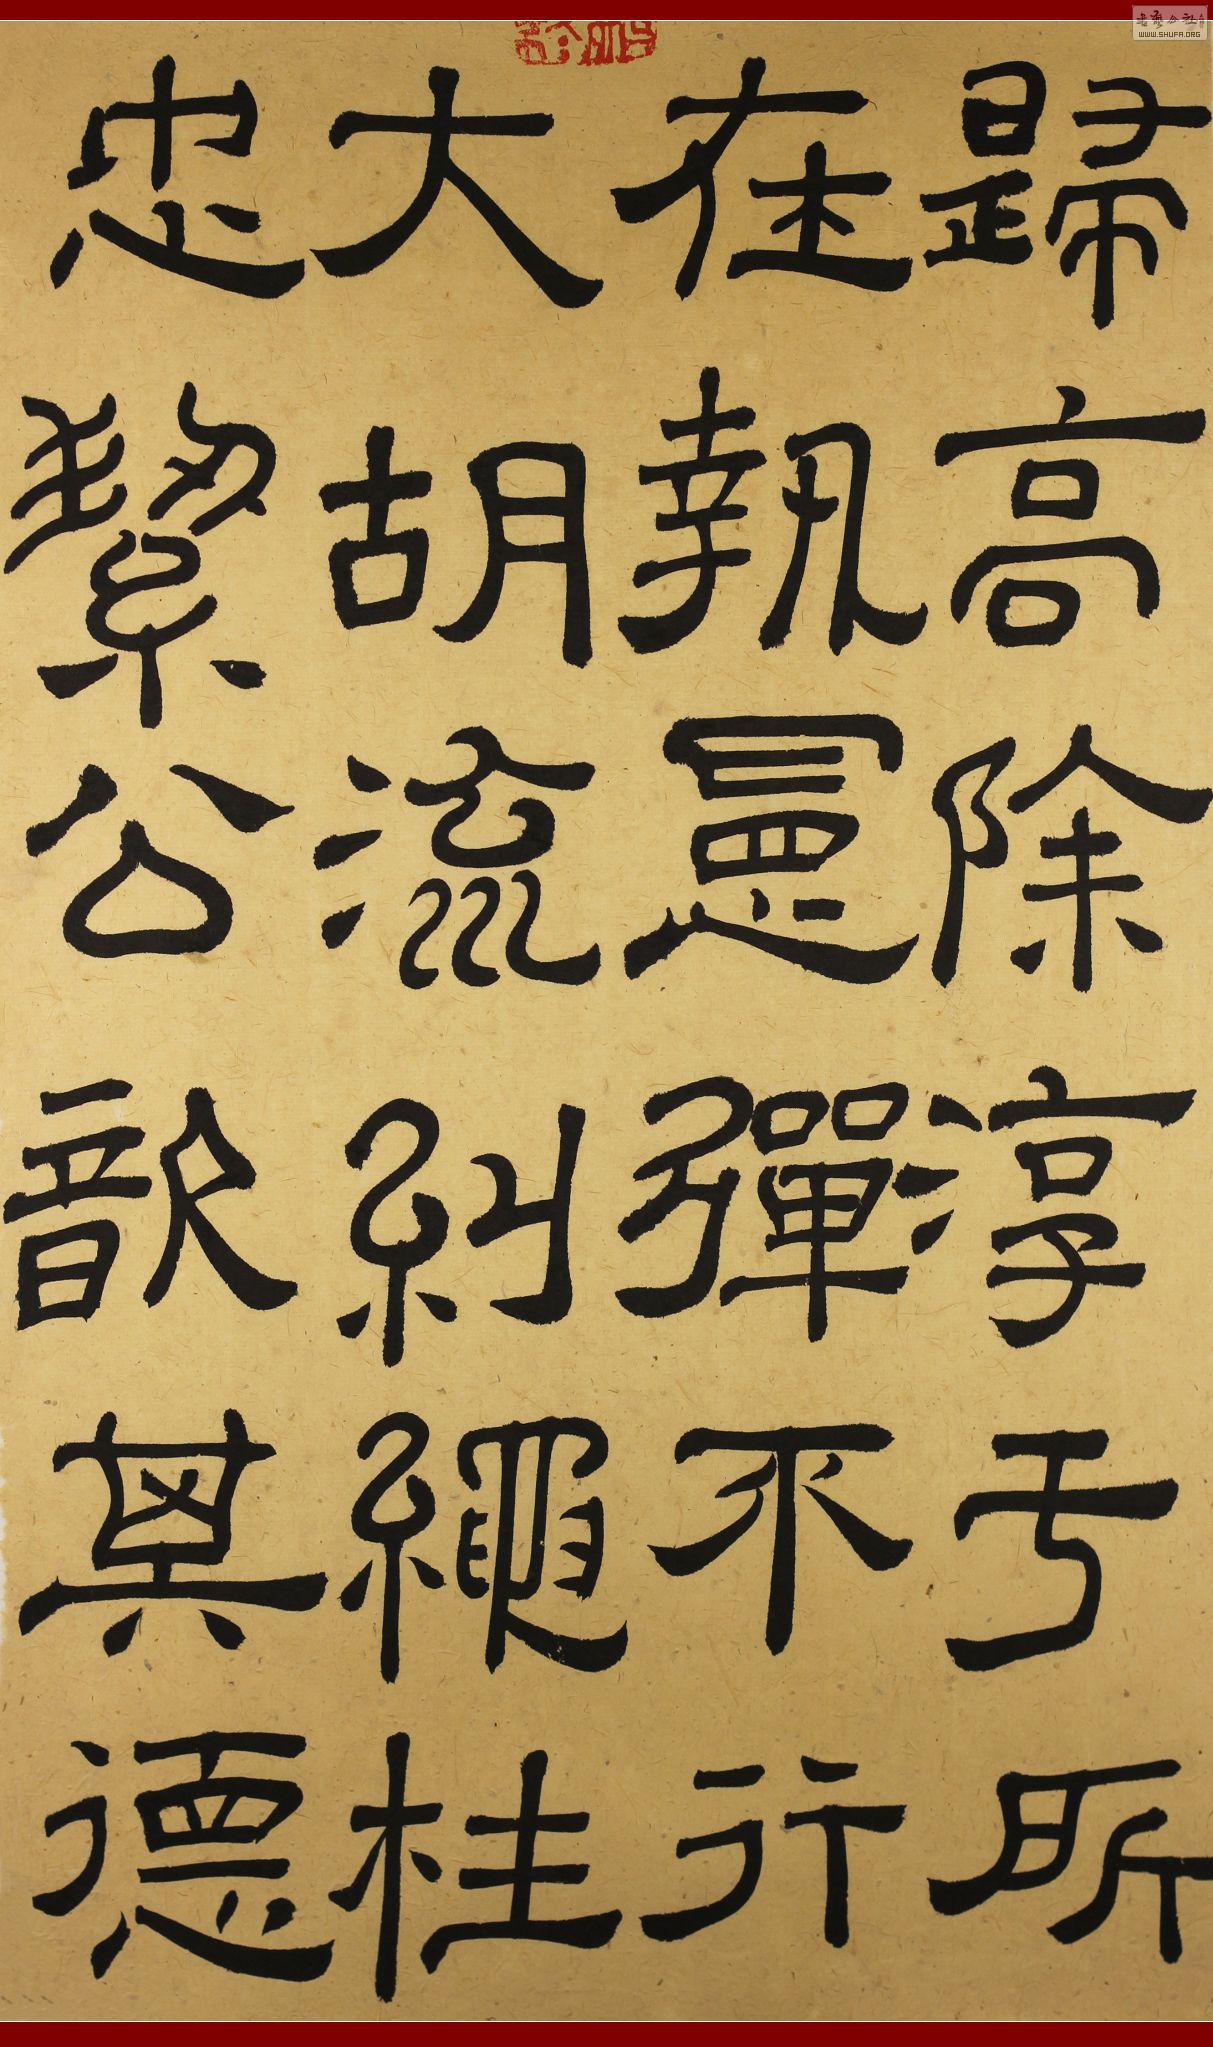 歸高除淳于所
在執憲彈不行
大胡流糾繩枉
忠絜公歆其德
WWW.SHUFA.ORG